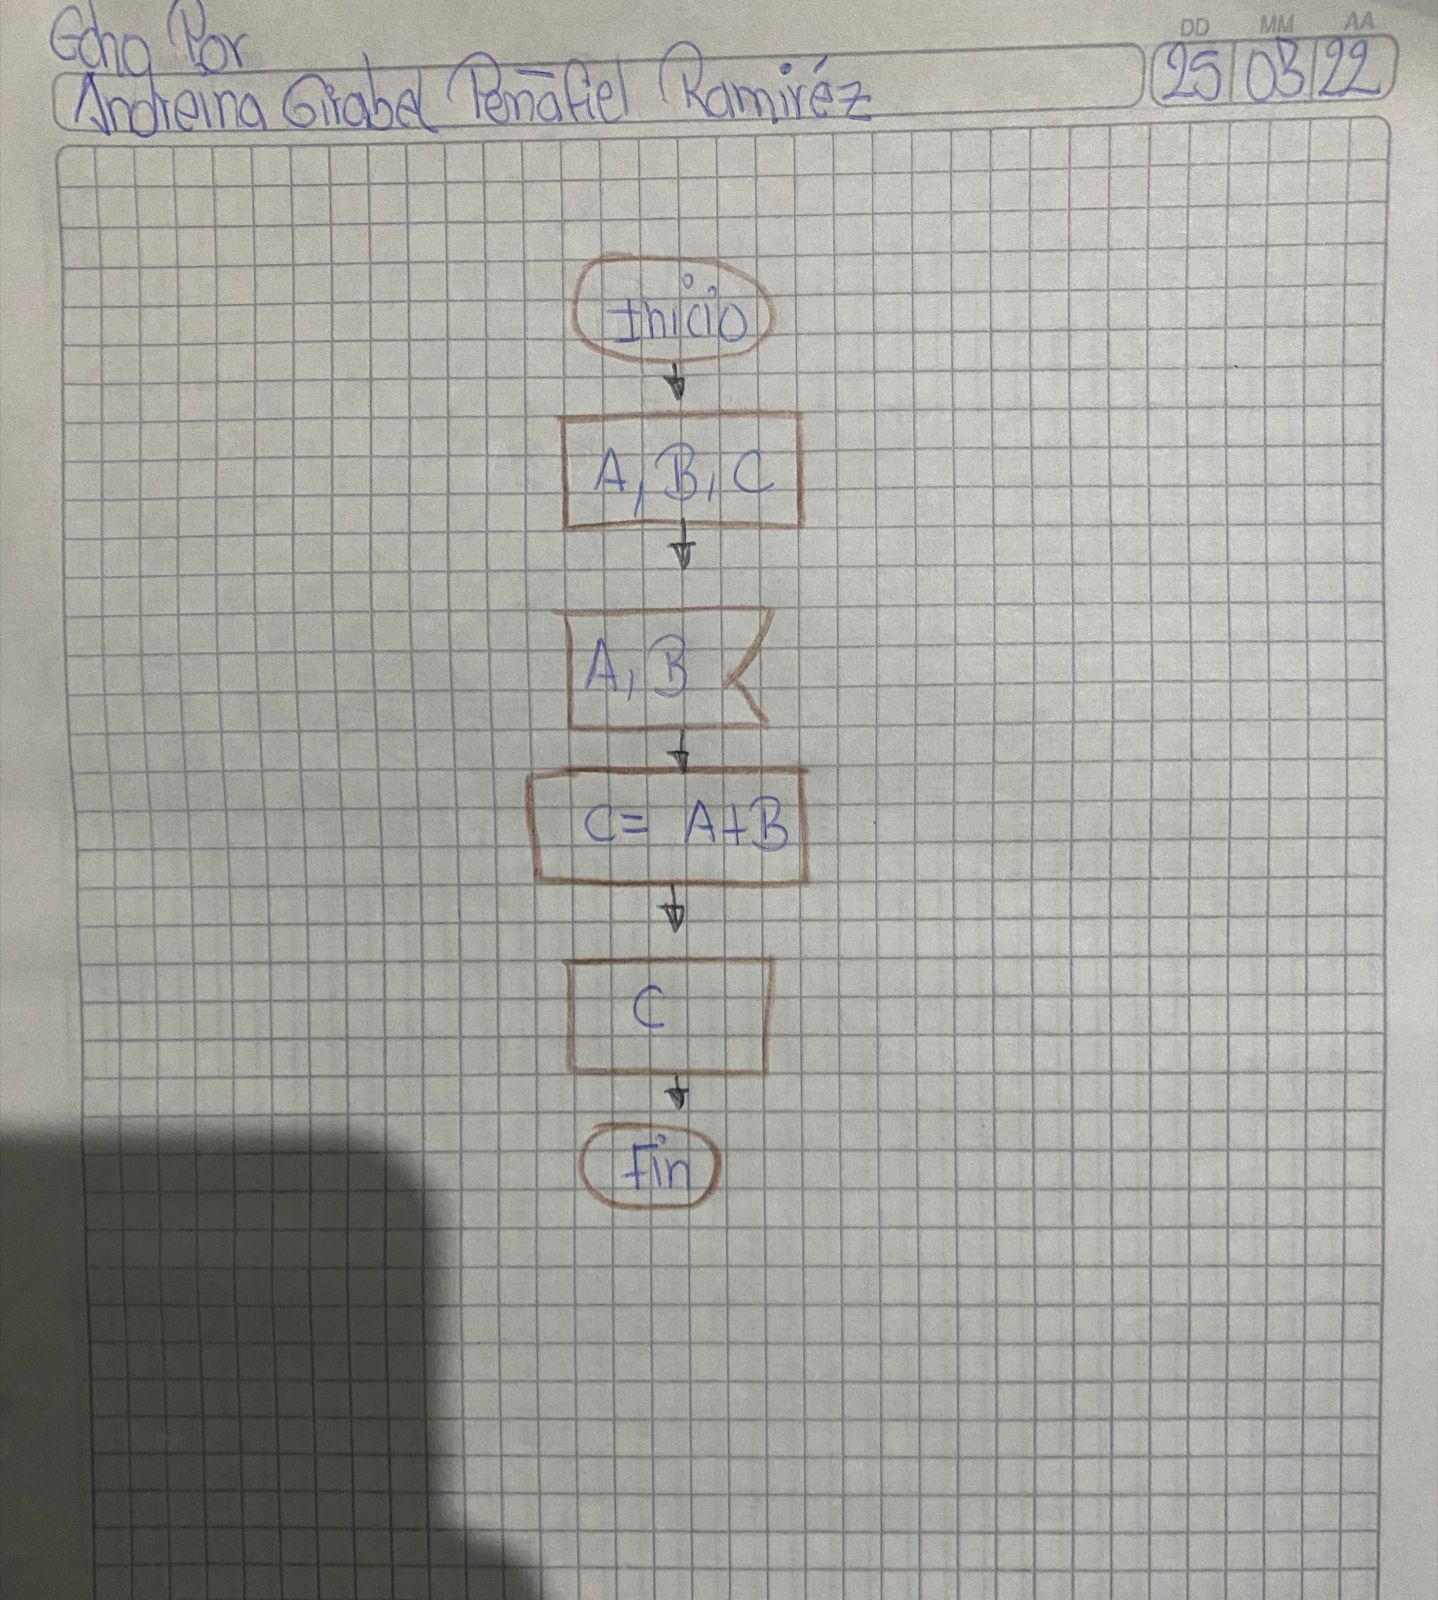 Echo Por
DD MM AA
Andreina Girabel Peñafiel Ramiréz 25 03 22
Inicio
A, B, C
A, B
C= A+B
C
Fin